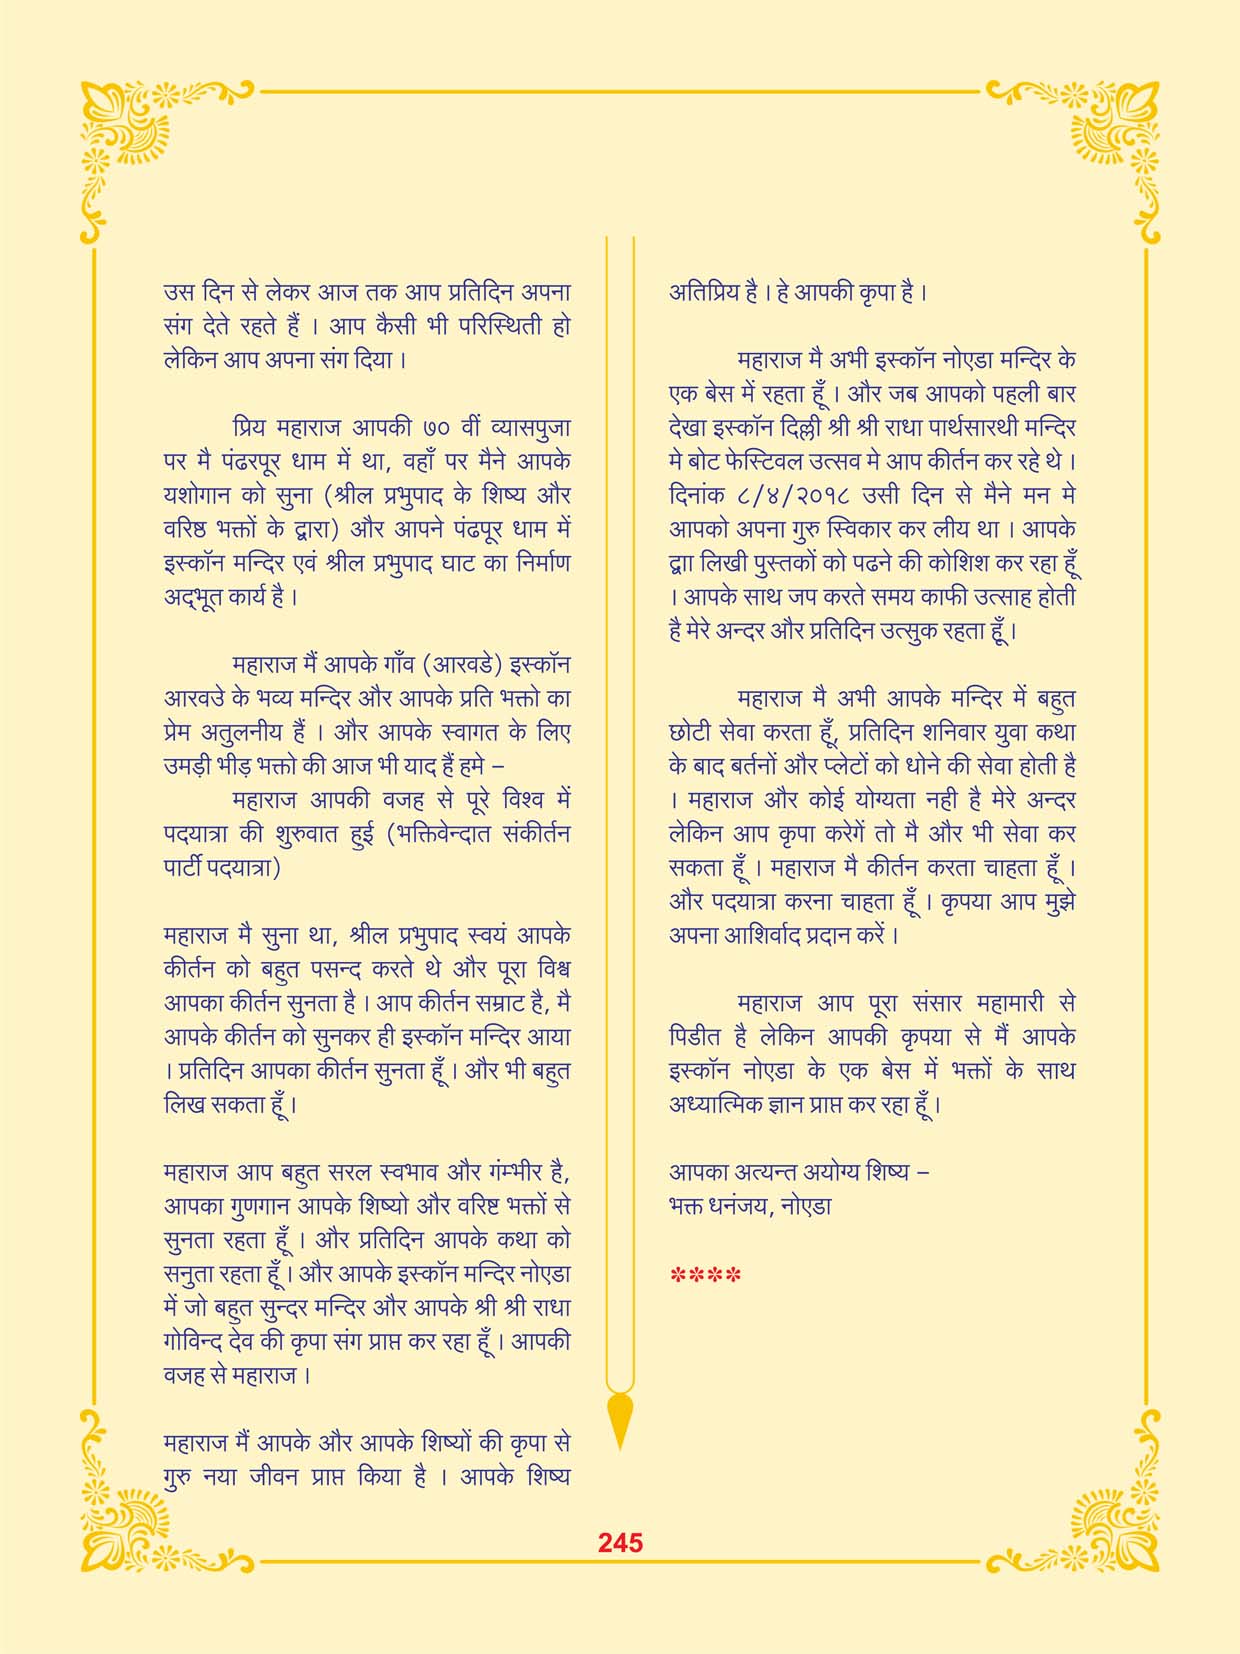 उस दिन से लेकर आज तक आप प्रतिदिन अपना
संग देते रहते हैं । आप कैसी भी परिस्थिती हो
लेकिन आप अपना संग दिया ।
प्रिय महाराज आपकी ७० वीं व्यासपुजा
पर मै पंढरपूर धाम में था, वहाँ पर मैने आपके
यशोगान को सुना (श्रील प्रभुपाद के शिष्य और
वरिष्ठ भक्तों के द्वारा) और आपने पंढपूर धाम में
इस्कॉन मन्दिर एवं श्रील प्रभुपाद घाट का निर्माण
अद्‌भूत कार्य है ।
महाराज मैं आपके गाँव (आरवडे) इस्कॉन
आरवउे के भव्य मन्दिर और आपके प्रति भक्तो का
प्रेम अतुलनीय हैं । और आपके स्वागत के लिए
उमड़ी भीड़ भक्तो की आज भी याद हैं हमे –
महाराज आपकी वजह से पूरे विश्व में
पदयात्रा की शुरुवात हुई (भक्तिवेन्दात संकीर्तन
पार्टी पदयात्रा)
महाराज मै सुना था, श्रील प्रभुपाद स्वयं आपके
कीर्तन को बहुत पसन्द करते थे और पूरा विश्व
आपका कीर्तन सुनता है । आप कीर्तन सम्राट है, मै
आपके कीर्तन को सुनकर ही इस्कॉन मन्दिर आया
। प्रतिदिन आपका कीर्तन सुनता हूँ । और भी बहुत
लिख सकता हूँ ।
महाराज आप बहुत सरल स्वभाव और गंम्भीर है,
आपका गुणगान आपके शिष्यो और वरिष्ट भक्तों से
सुनता रहता हूँ । और प्रतिदिन आपके कथा को
सनुता रहता हूँ । और आपके इस्कॉन मन्दिर नोएडा
में जो बहुत सुन्दर मन्दिर और आपके श्री श्री राधा
गोविन्द देव की कृपा संग प्राप्त कर रहा हूँ । आपकी
वजह से महाराज ।
महाराज मैं आपके और आपके शिष्यों की कृपा से
गुरु नया जीवन प्राप्त किया है । आपके शिष्य
अतिप्रिय है । हे आपकी कृपा है ।
महाराज मै अभी इस्कॉन नोएडा मन्दिर के
एक बेस में रहता हूँ । और जब आपको पहली बार
देखा इस्कॉन दिल्ली श्री श्री राधा पार्थसारथी मन्दिर
मे बोट फेस्टिवल उत्सव मे आप कीर्तन कर रहे थे ।
दिनांक ८/४/२०१८ उसी दिन से मैने मन मे
आपको अपना गुरु स्विकार कर लीय था । आपके
द्वाा लिखी पुस्तकों को पढने की कोशिश कर रहा हूँ
। आपके साथ जप करते समय काफी उत्साह होती
है मेरे अन्दर और प्रतिदिन उत्सुक रहता हूँ ।
महाराज मै अभी आपके मन्दिर में बहुत
छोटी सेवा करता हूँ, प्रतिदिन शनिवार युवा कथा
के बाद बर्तनों और प्लेटों को धोने की सेवा होती है
। महाराज और कोई योग्यता नही है मेरे अन्दर
लेकिन आप कृपा करेगें तो मै और भी सेवा कर
सकता हूँ । महाराज मै कीर्तन करता चाहता हूँ ।
और पदयात्रा करना चाहता हूँ । कृपया आप मुझे
अपना आशिर्वाद प्रदान करें ।
महाराज आप पूरा संसार महामारी से
पिडीत है लेकिन आपकी कृपया से मैं आपके
इस्कॉन नोएडा के एक बेस में भक्तों के साथ
अध्यात्मिक ज्ञान प्राप्त कर रहा हूँ ।
आपका अत्यन्त अयोग्य शिष्य –
भक्त धनंजय, नोएडा
****
245